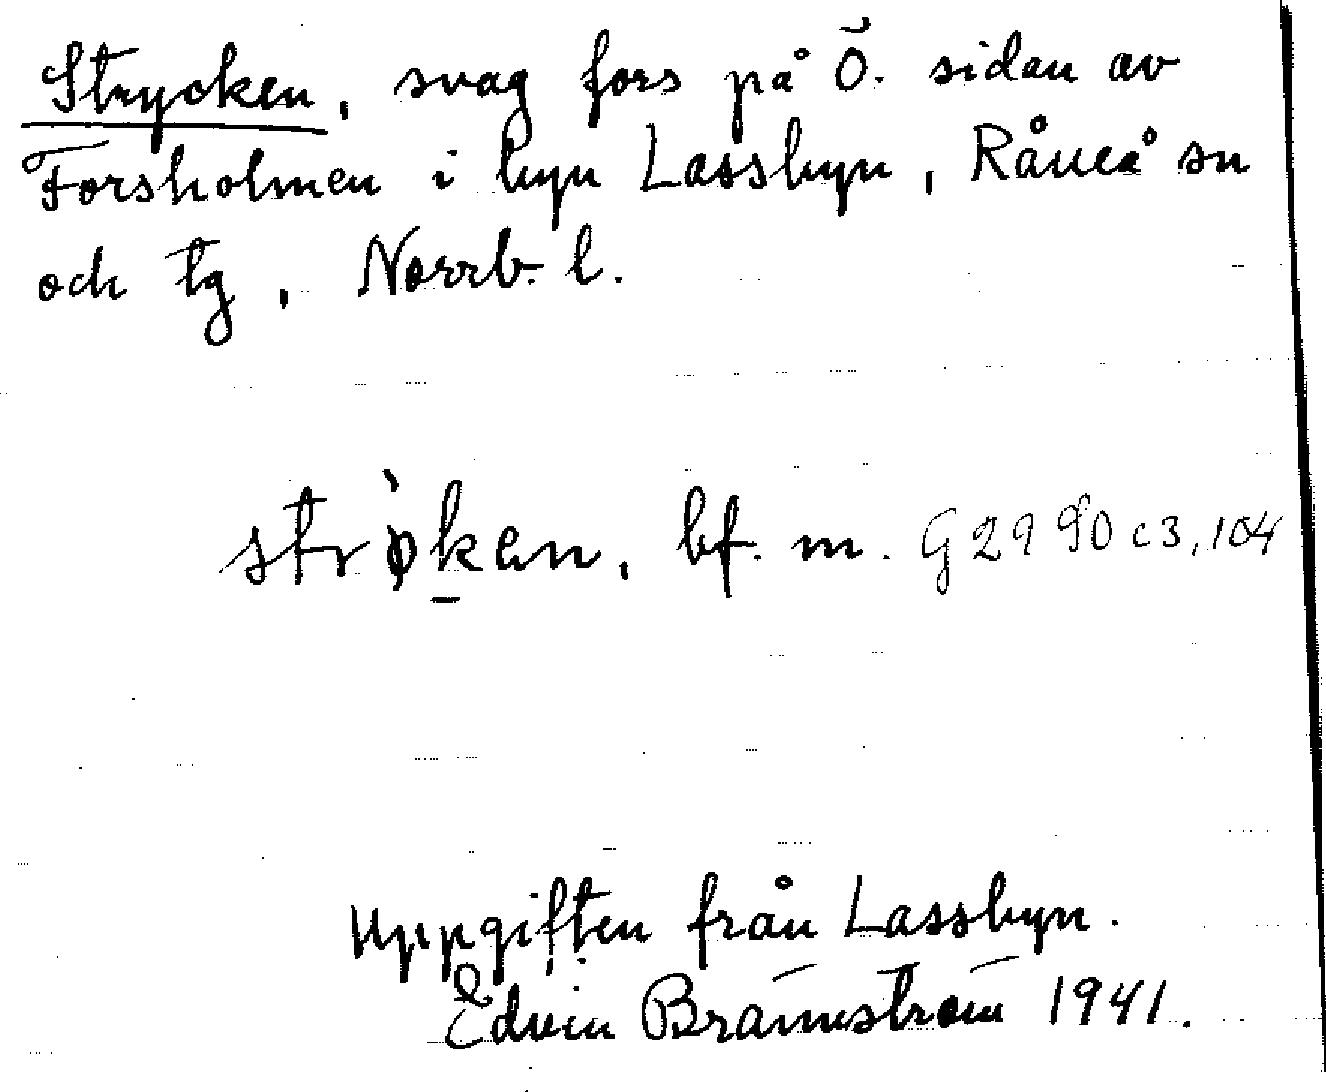 Strycken, svag fors på Ö. sidan av
Forsholmen i byn Lassbyn, Råneå sn
och tg, Norrb. l.
strø̀k̲en, bf. m. G 2990 c3, 104
Uppgiften från Lassbyn.
Edvin Brännström 1941.